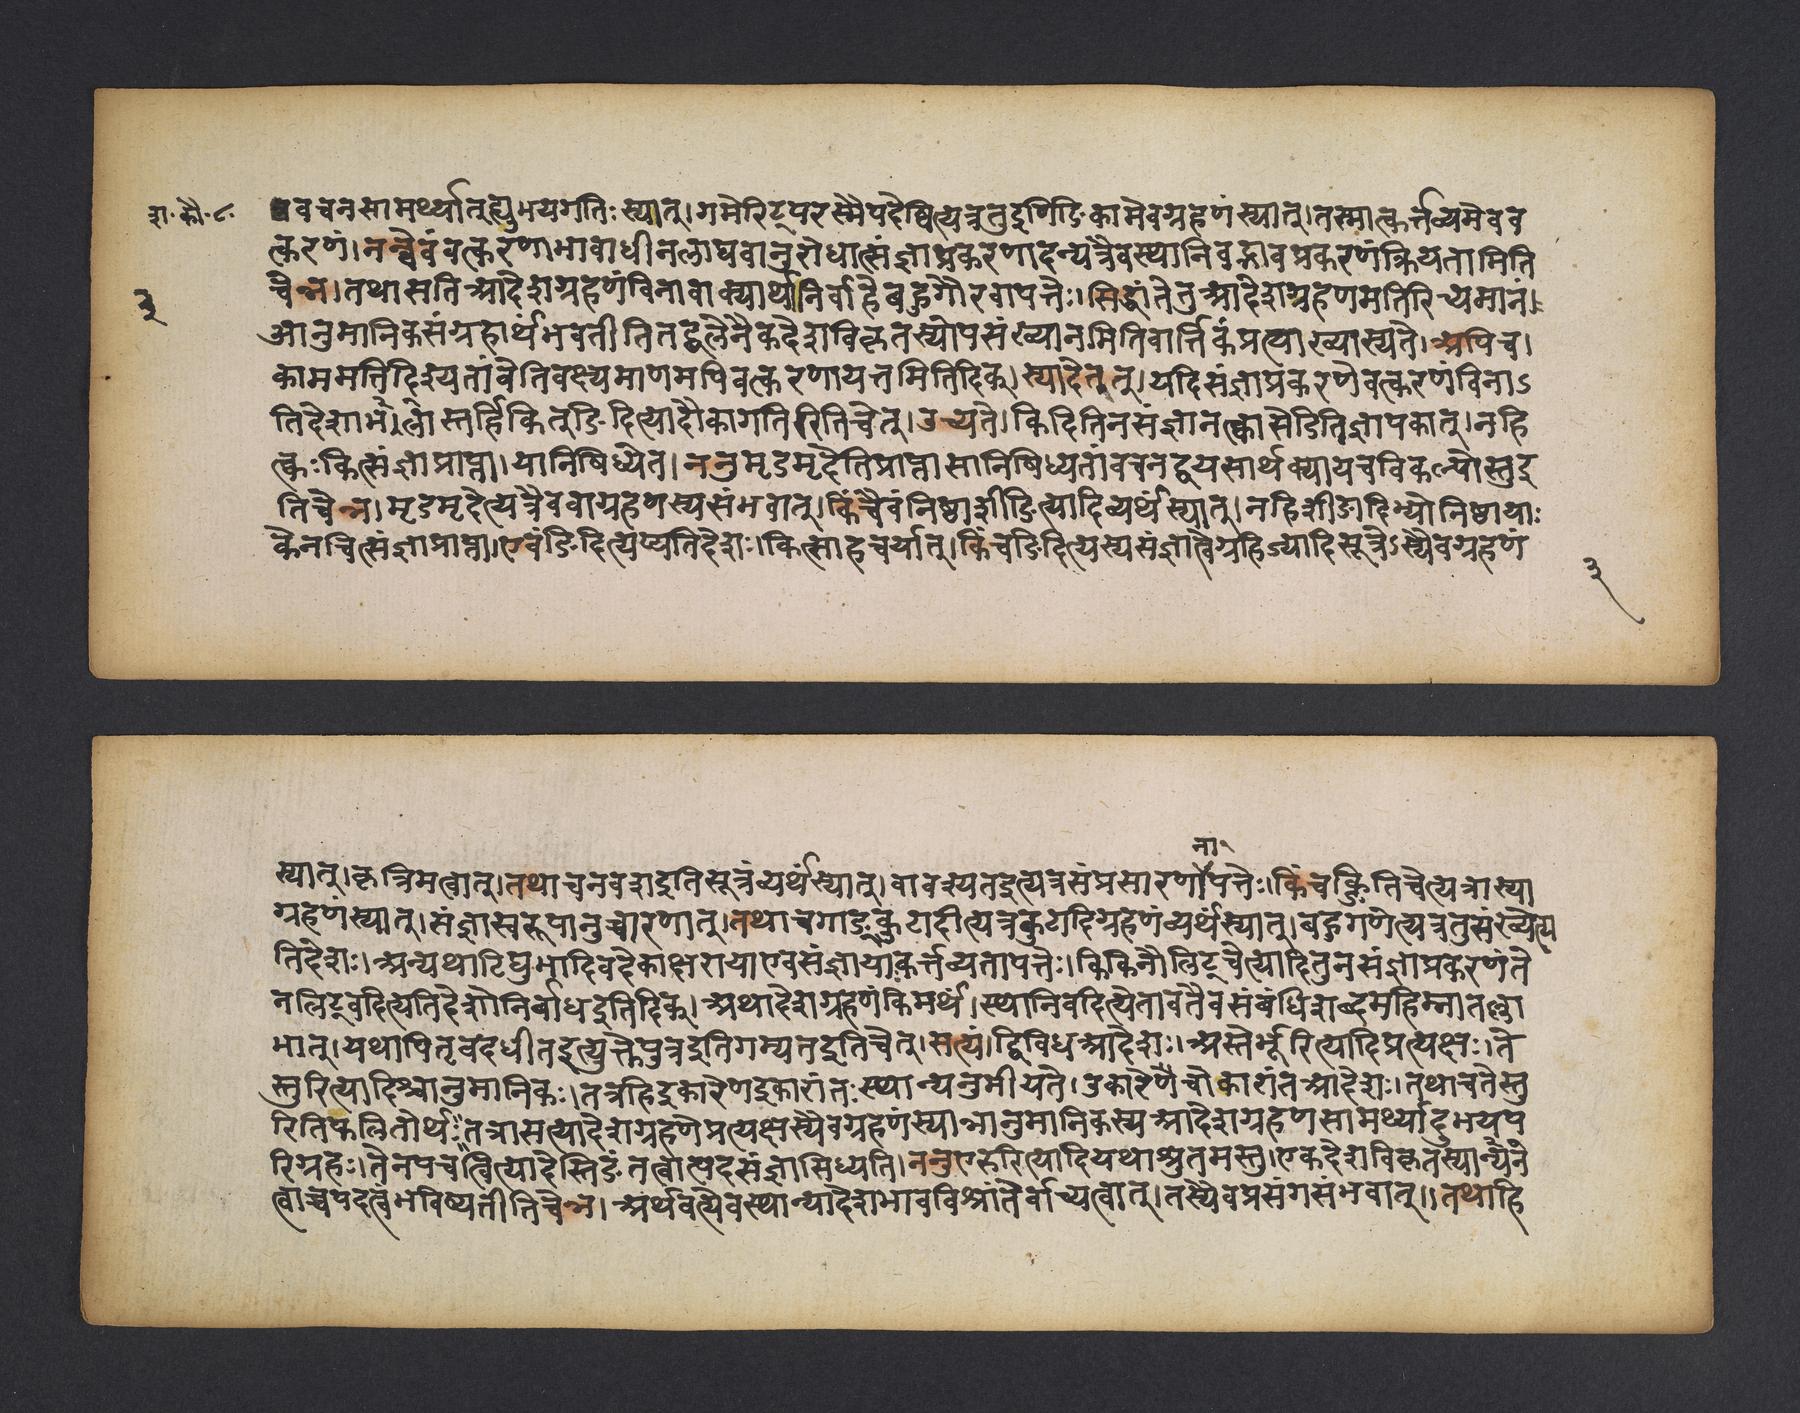 श. कौ. ८.
ववचनसामर्थ्यात्तूभयगतिः स्यात्। गमेरिट्परस्मैपदेष्वित्यत्रतुइणिङिकामेवग्रहणं स्यात्। तस्मात्कर्त्तव्यमेवव
त्करणं। नन्वेवं वत्करणाभावाधीनलाघवानुरोधात्संज्ञाप्रकरणादन्यत्रैवस्थानिवद्भावप्रकरणंक्रियतामिति
चेन्न। तथासति आदेशग्रहणंविनावाक्यार्थानिर्वाहेबहुगौरवापत्तेः। सिद्धांतेतुआदेशग्रहणमतिरिच्यमानं।
३
आनुमानिकसंग्रहार्थंभवतीतितद्बलेनैकदेशविकृतस्योपसंख्यानमितिवार्त्तिकंप्रत्याख्यास्यते। अपिच।
काममतिदिश्यतांवेतिवक्ष्यमाणमपिवत्करणायत्तमितिदिक्। स्यादेतत्। यदिसंज्ञाप्रकरणेवत्करणंविनाऽ
तिदेशाभावस्तर्हिकित्ङिदित्यादौकागतिरितिचेत्। उच्यते। किदितिनसंज्ञानत्कासेडितिज्ञापकात्। नहि
त्कः कित्संज्ञाप्राप्ता। यानिषिध्येत। ननुमृडमृदेतिप्राप्तासानिषिध्यतांवचनद्वयसार्थक्यायचविकल्पोस्तुइ
तिचेन्न। मृडमृदेत्यत्रैववाग्रहणस्यसंभवात्। किंचैवंनिष्ठाशीङित्यादिव्यर्थंस्यात्। नहिशीङादिभ्योनिष्ठायाः
केनचित्संज्ञाप्राप्ता। एवंङिदित्यप्यतिदेशः। कित्साहचर्यात्। किंचङिदित्यस्यसंज्ञात्वेग्रहिज्यादिसूत्रेऽस्यैवग्रहणं
३
ना
स्यात्। कृत्रिमत्वात्। तथाचनवशइतिसूत्रंव्यर्थंस्यात्। वावश्यतइत्यत्रसंप्रसारणापत्तेः। किंचक्ङितिचेत्यत्रास्या
ग्रहणंस्यात्। संज्ञास्वरूपानुच्चारणात्। तथाचगाङ्कुटादीत्यत्रकुटादिग्रहणंव्यर्थंस्यात्। बहुगणेत्यत्रतुसंख्येत्य
तिदेशः। अन्यथाटिघुभादिवदेकाक्षरायाएवसंज्ञायाःकर्त्तव्यतापत्तेः। किकिनौलिट्चेत्यादितुनसंज्ञाप्रकरणंते
नलिट्वदित्यतिदेशोनिर्बाधइतिदिक्। अथादेशग्रहणंकिमर्थं। स्थानिवदित्येतावतैवसंबंधिशब्दमहिम्नातल्ला
भात्। यथापितृवदधीतइत्युक्तेपुत्रइतिगम्यतइतिचेत्। सत्यं। द्विविधआदेशः। अस्तेर्भूरित्यादिप्रत्यक्षः। ते
स्तुरित्यादिश्चानुमानिकः। तत्रहिइकारेणइकारांतः स्थान्यनुमीयते। उकारेणचोकारांतआदेशः। तथाचतेस्तु
रितिफलितोर्थः। तत्रासत्यादेशग्रहणेप्रत्यक्षस्यैवग्रहणंस्यान्नानुमानिकस्य आदेशग्रहणसामर्थ्यादुभयप
रिग्रहः। तेनपचत्वित्यादेस्तिङंतत्वात्पदसंज्ञासिध्यति। ननुएरुरित्यादियथाश्रुतमस्तु। एकदेशविकृतस्यानन्यने
त्वाच्चपदत्वंभविष्यतीतिचेन्न। अर्थवत्येवस्थान्यादेशभावविश्रांतेर्वाच्यत्वात्। तस्यैवप्रसंगसंभवात्॥ तथाहि